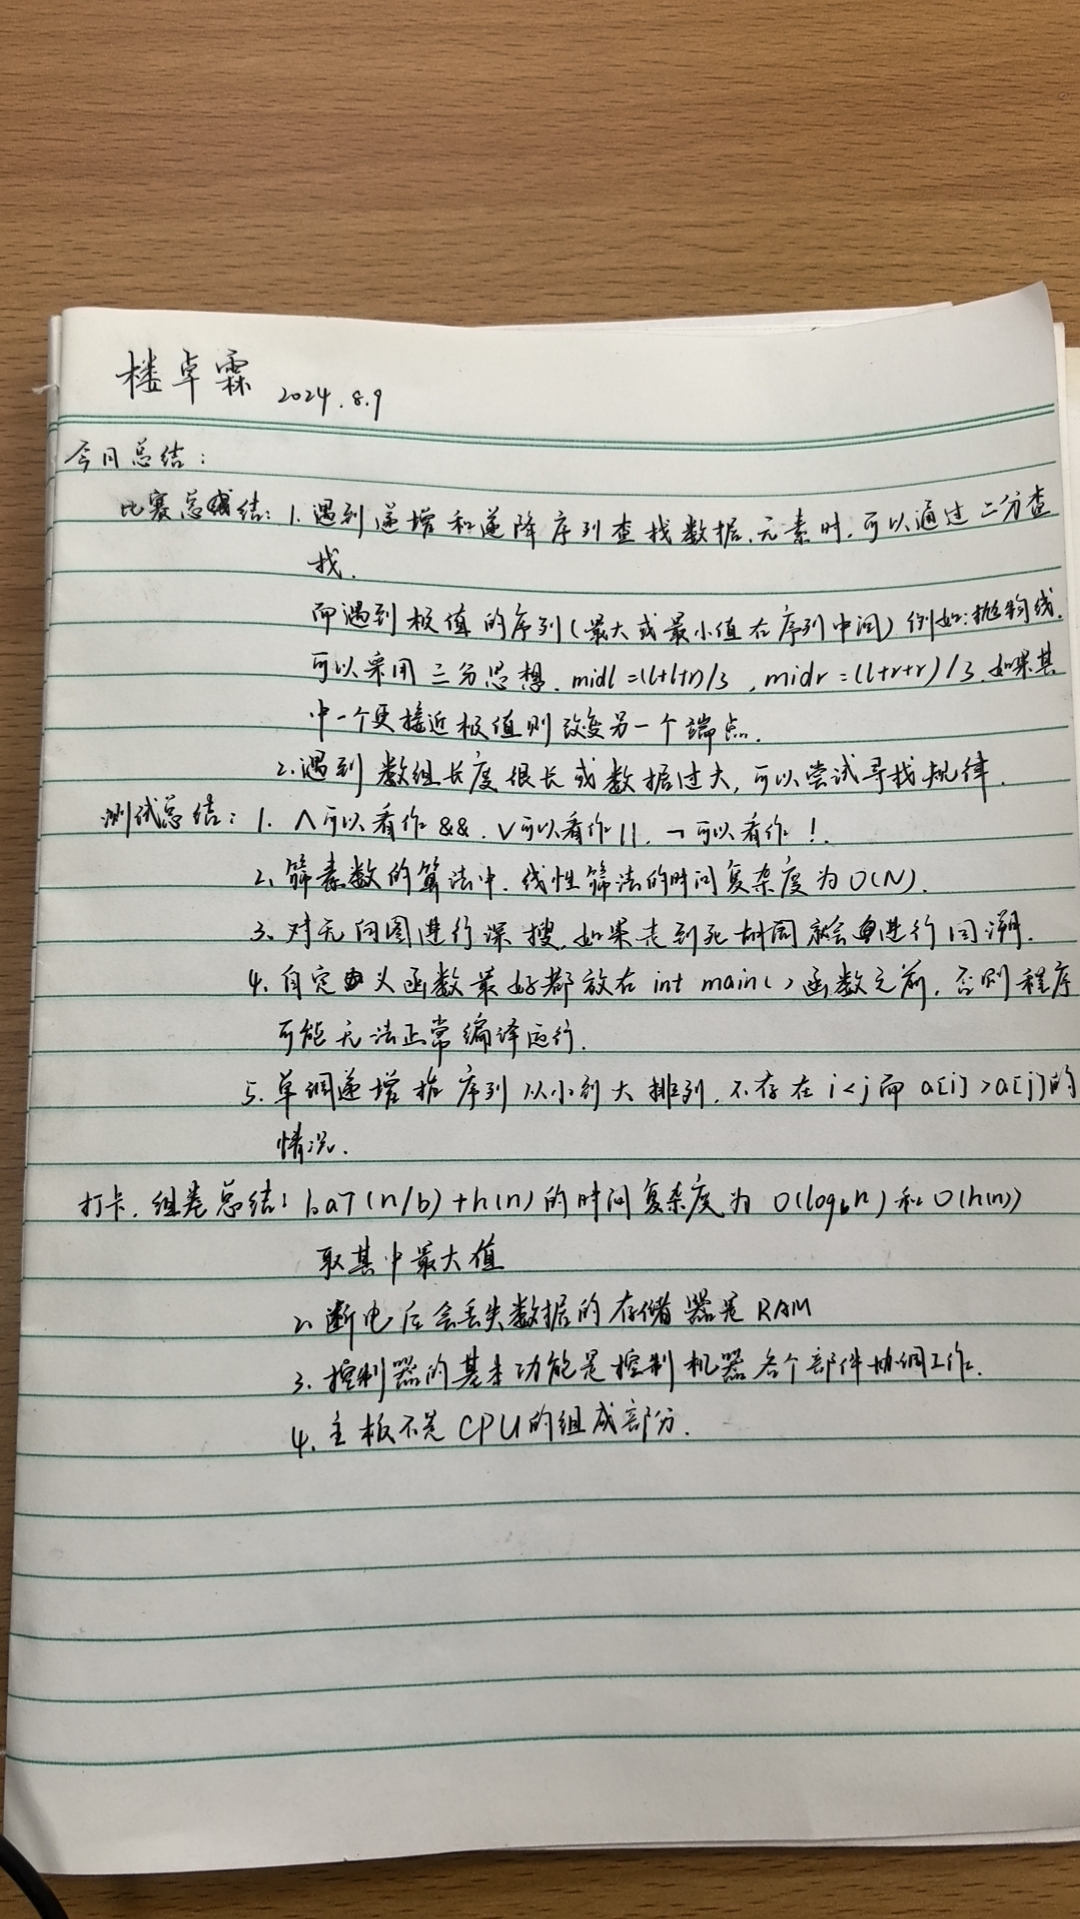 楼卓霖 2024.8.9
今日总结:
比赛总结: 1.遇到递增和递降序列查找数据、元素时,可以通过二分查
找.
而遇到极值的序列(最大或最小值在序列中间)例如:抛物线.
可以采用三分思想. midl=(l+l+r)/3 , midr=(l+r+r)/3.如果其
中一个更接近极值则改变另一个端点.
2.遇到数组长度很长或数据过大,可以尝试寻找规律.
测试总结: 1. ∧可以看作&&. ∨可以看作||. ¬可以看作!.
2、筛素数的算法中.线性筛法的时间复杂度为O(N).
3、对无向图进行深搜,如果走到死胡同就会进行回溯.
4.自定义函数最好都放在int main()函数之前.否则程序
可能无法正常编译运行.
5.单调递增指序列从小到大排列.不存在i<j而a[i]>a[j]的
情况.
打卡.组卷总结: 1.aT(n/b)+h(n)的时间复杂度为 O(log_b n)和O(h(n))
取其中最大值
2.断电后会丢失数据的存储器是RAM
3.控制器的基本功能是控制机器各个部件协调工作.
4.主板不是CPU的组成部分.